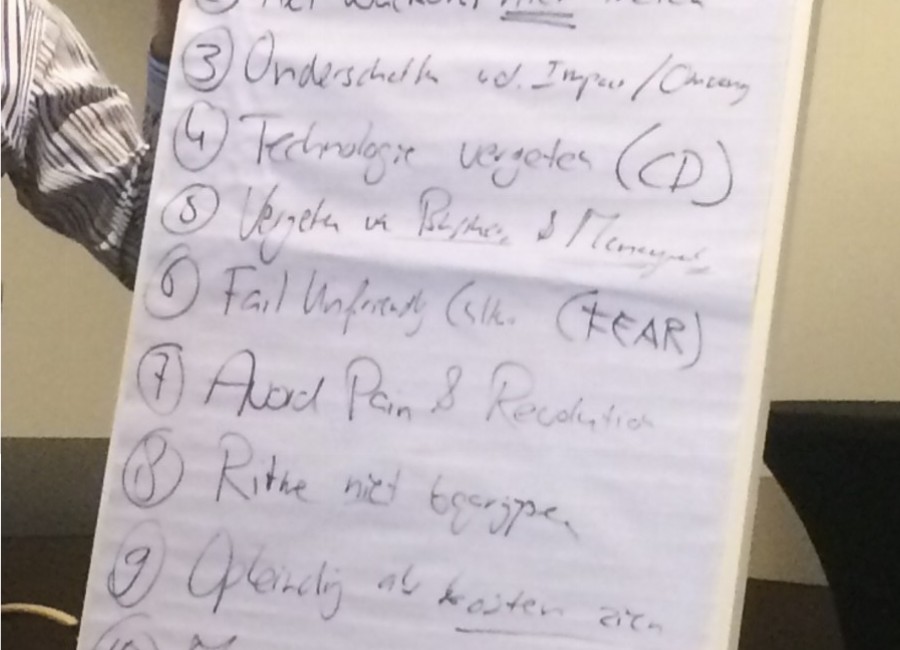 ③ Onderschatten vd. Impact / Omvang
④ Technologie vergeten (CD)
⑤ Vergeten vn Business & Management
⑥ Fail Unfriendly Cult. (FEAR)
⑦ Avoid Pain & Revolution
⑧ Ritme niet begrepen
⑨ Opleiding als kosten zien